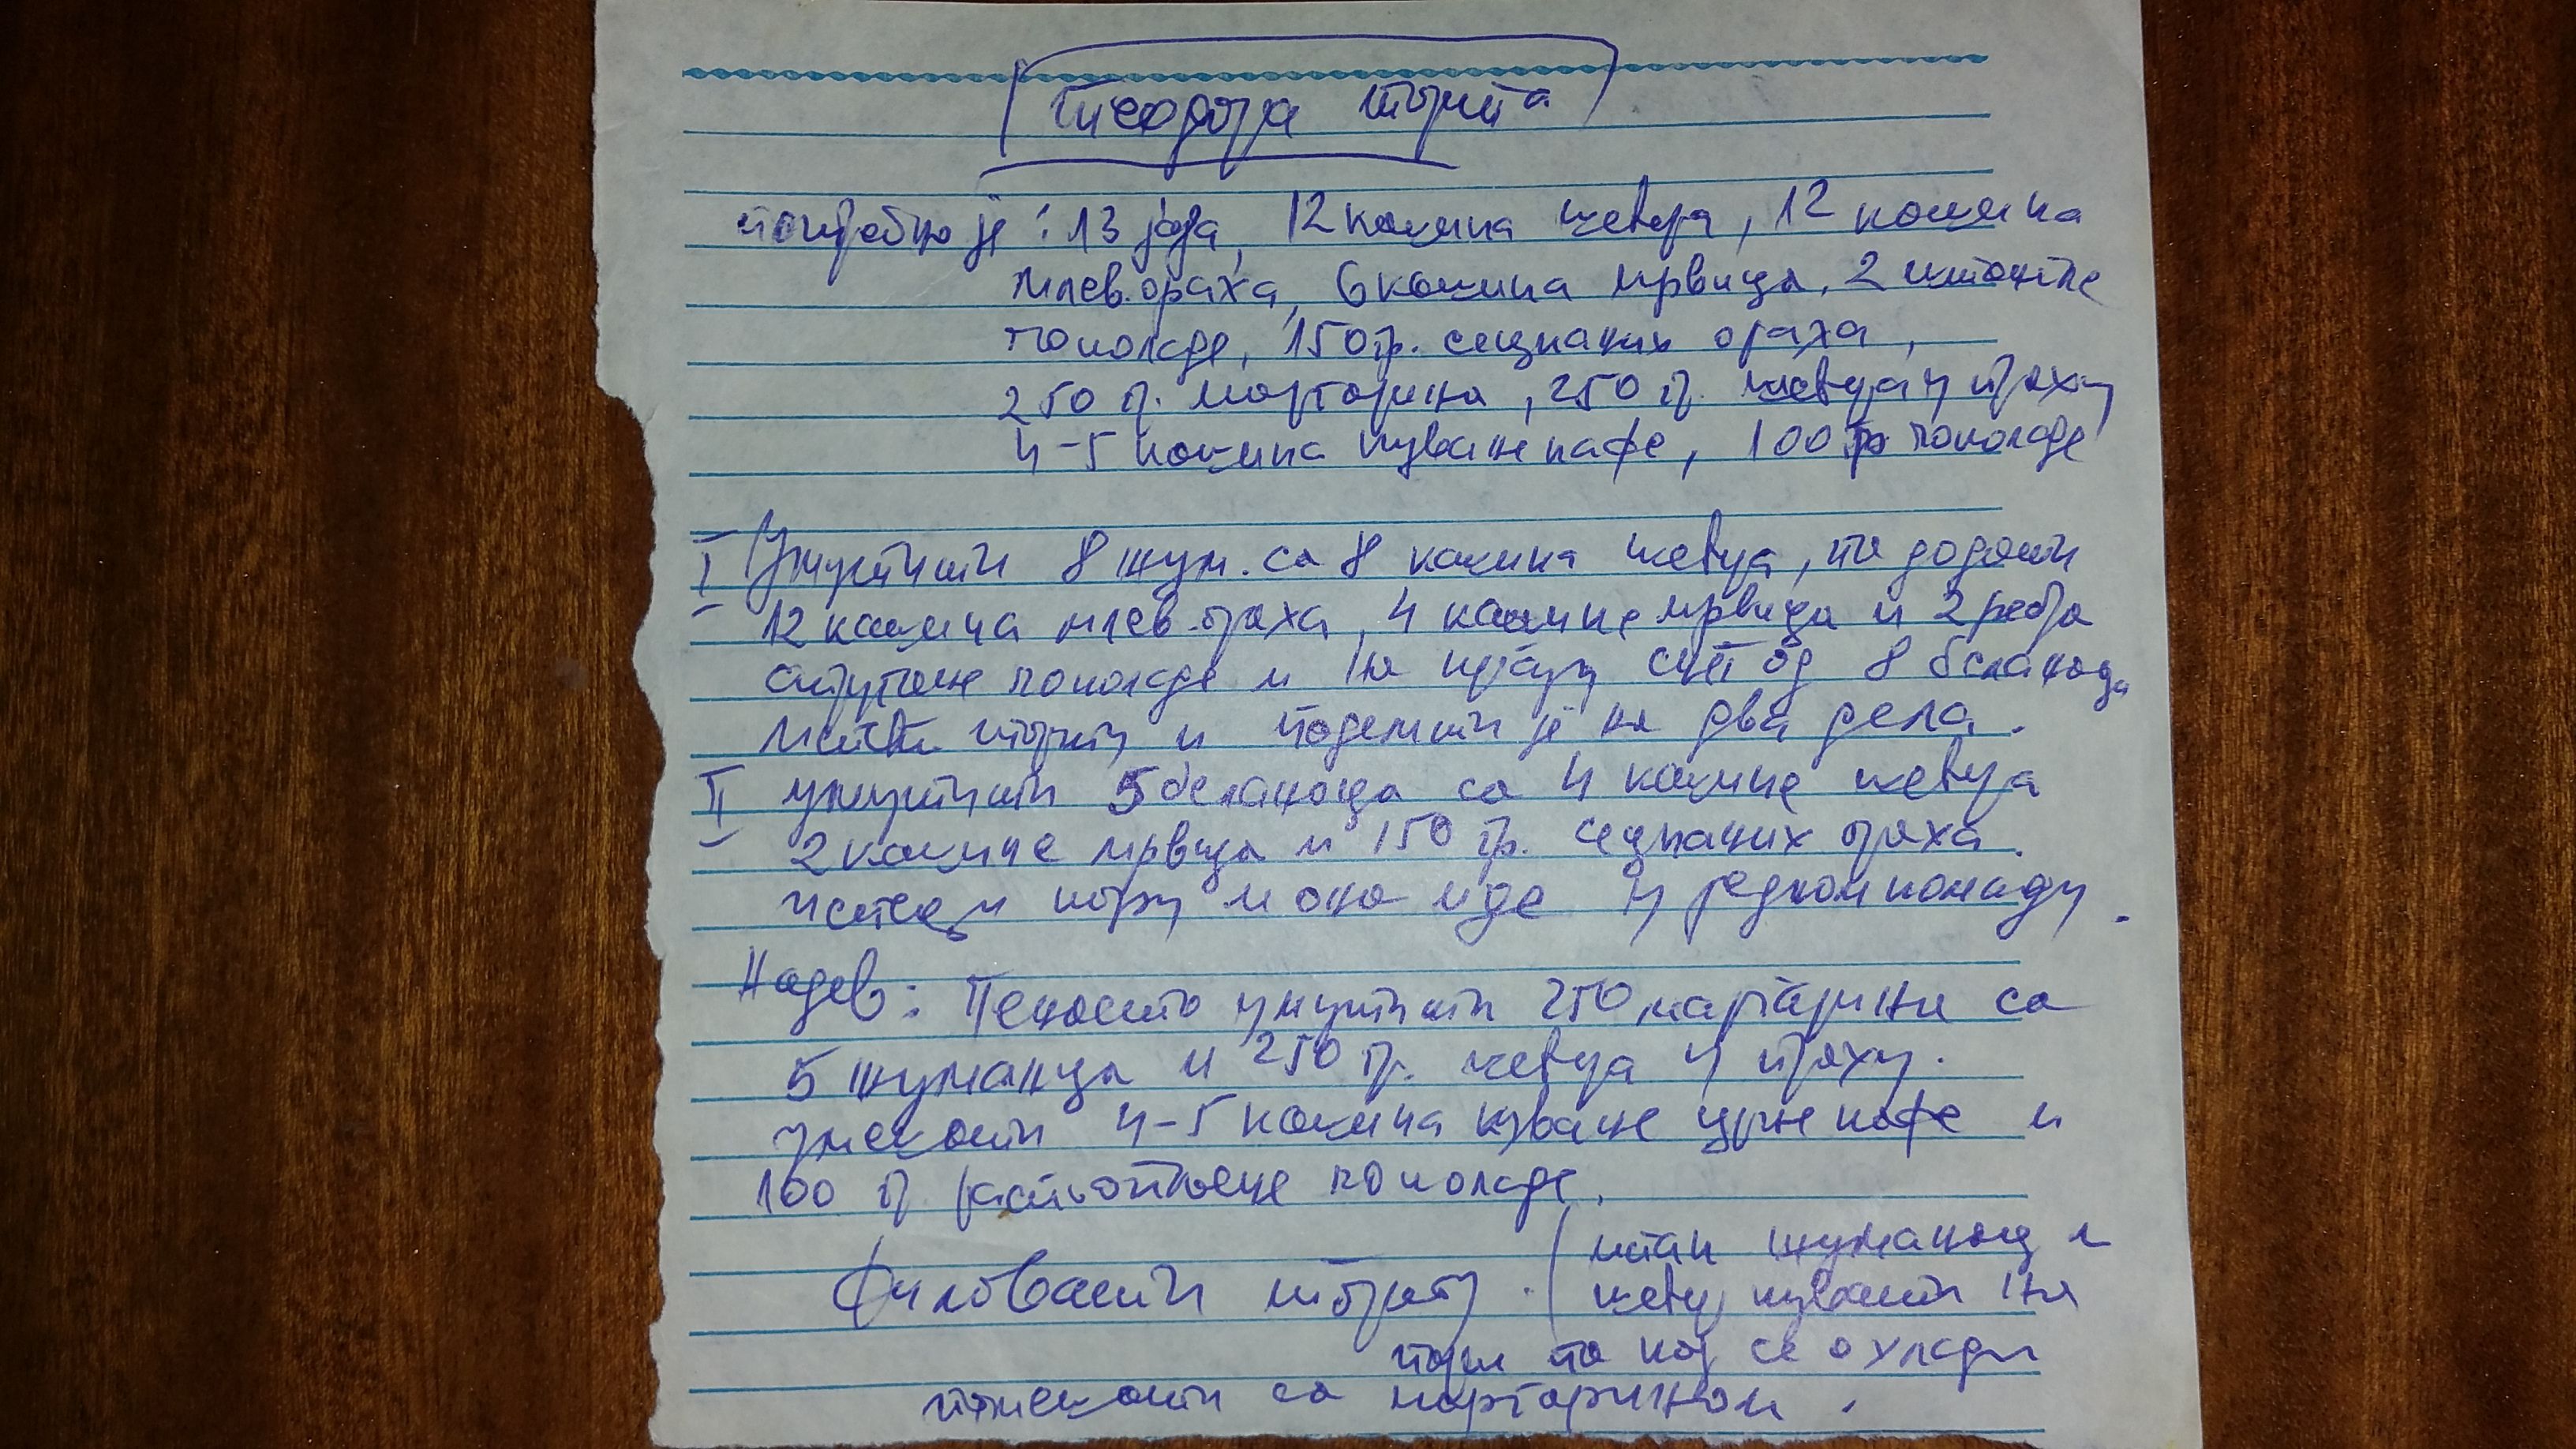 Теодора торта
потребно је: 13 јаја, 12 кашика шећера, 12 кашика
млев. ораха, 6 кашика мрвица, 2 штангле
чоколаде, 150 гр. сецканих ораха,
250 гр. маргарина, 250 гр. шећера у праху
4-5 кашика куване кафе, 100 гр чоколаде
I Умутити 8 жум. са 8 кашика шећера, па додати
12 кашика млев. ораха, 4 кашике мрвица и 2 ребра
чоколаде и на крају снег од 8 беланаца
торту и поделити је на два дела.
II умутити 5 беланаца са 4 кашике шећера
2 кашике мрвица и 150 гр. сецканих ораха.
испећи кору и она иде у једном комаду.
Надев: Пенасто умутити 250 маргарина са
5 жуманца и 250 гр. шећера у праху.
умешати 4-5 кашика куване црне кафе и
100 гр. растопљене чоколаде.
Филовати торту. (
жуманац и
шећер кувати на
пари па кад се охлади
помешати са маргарином.